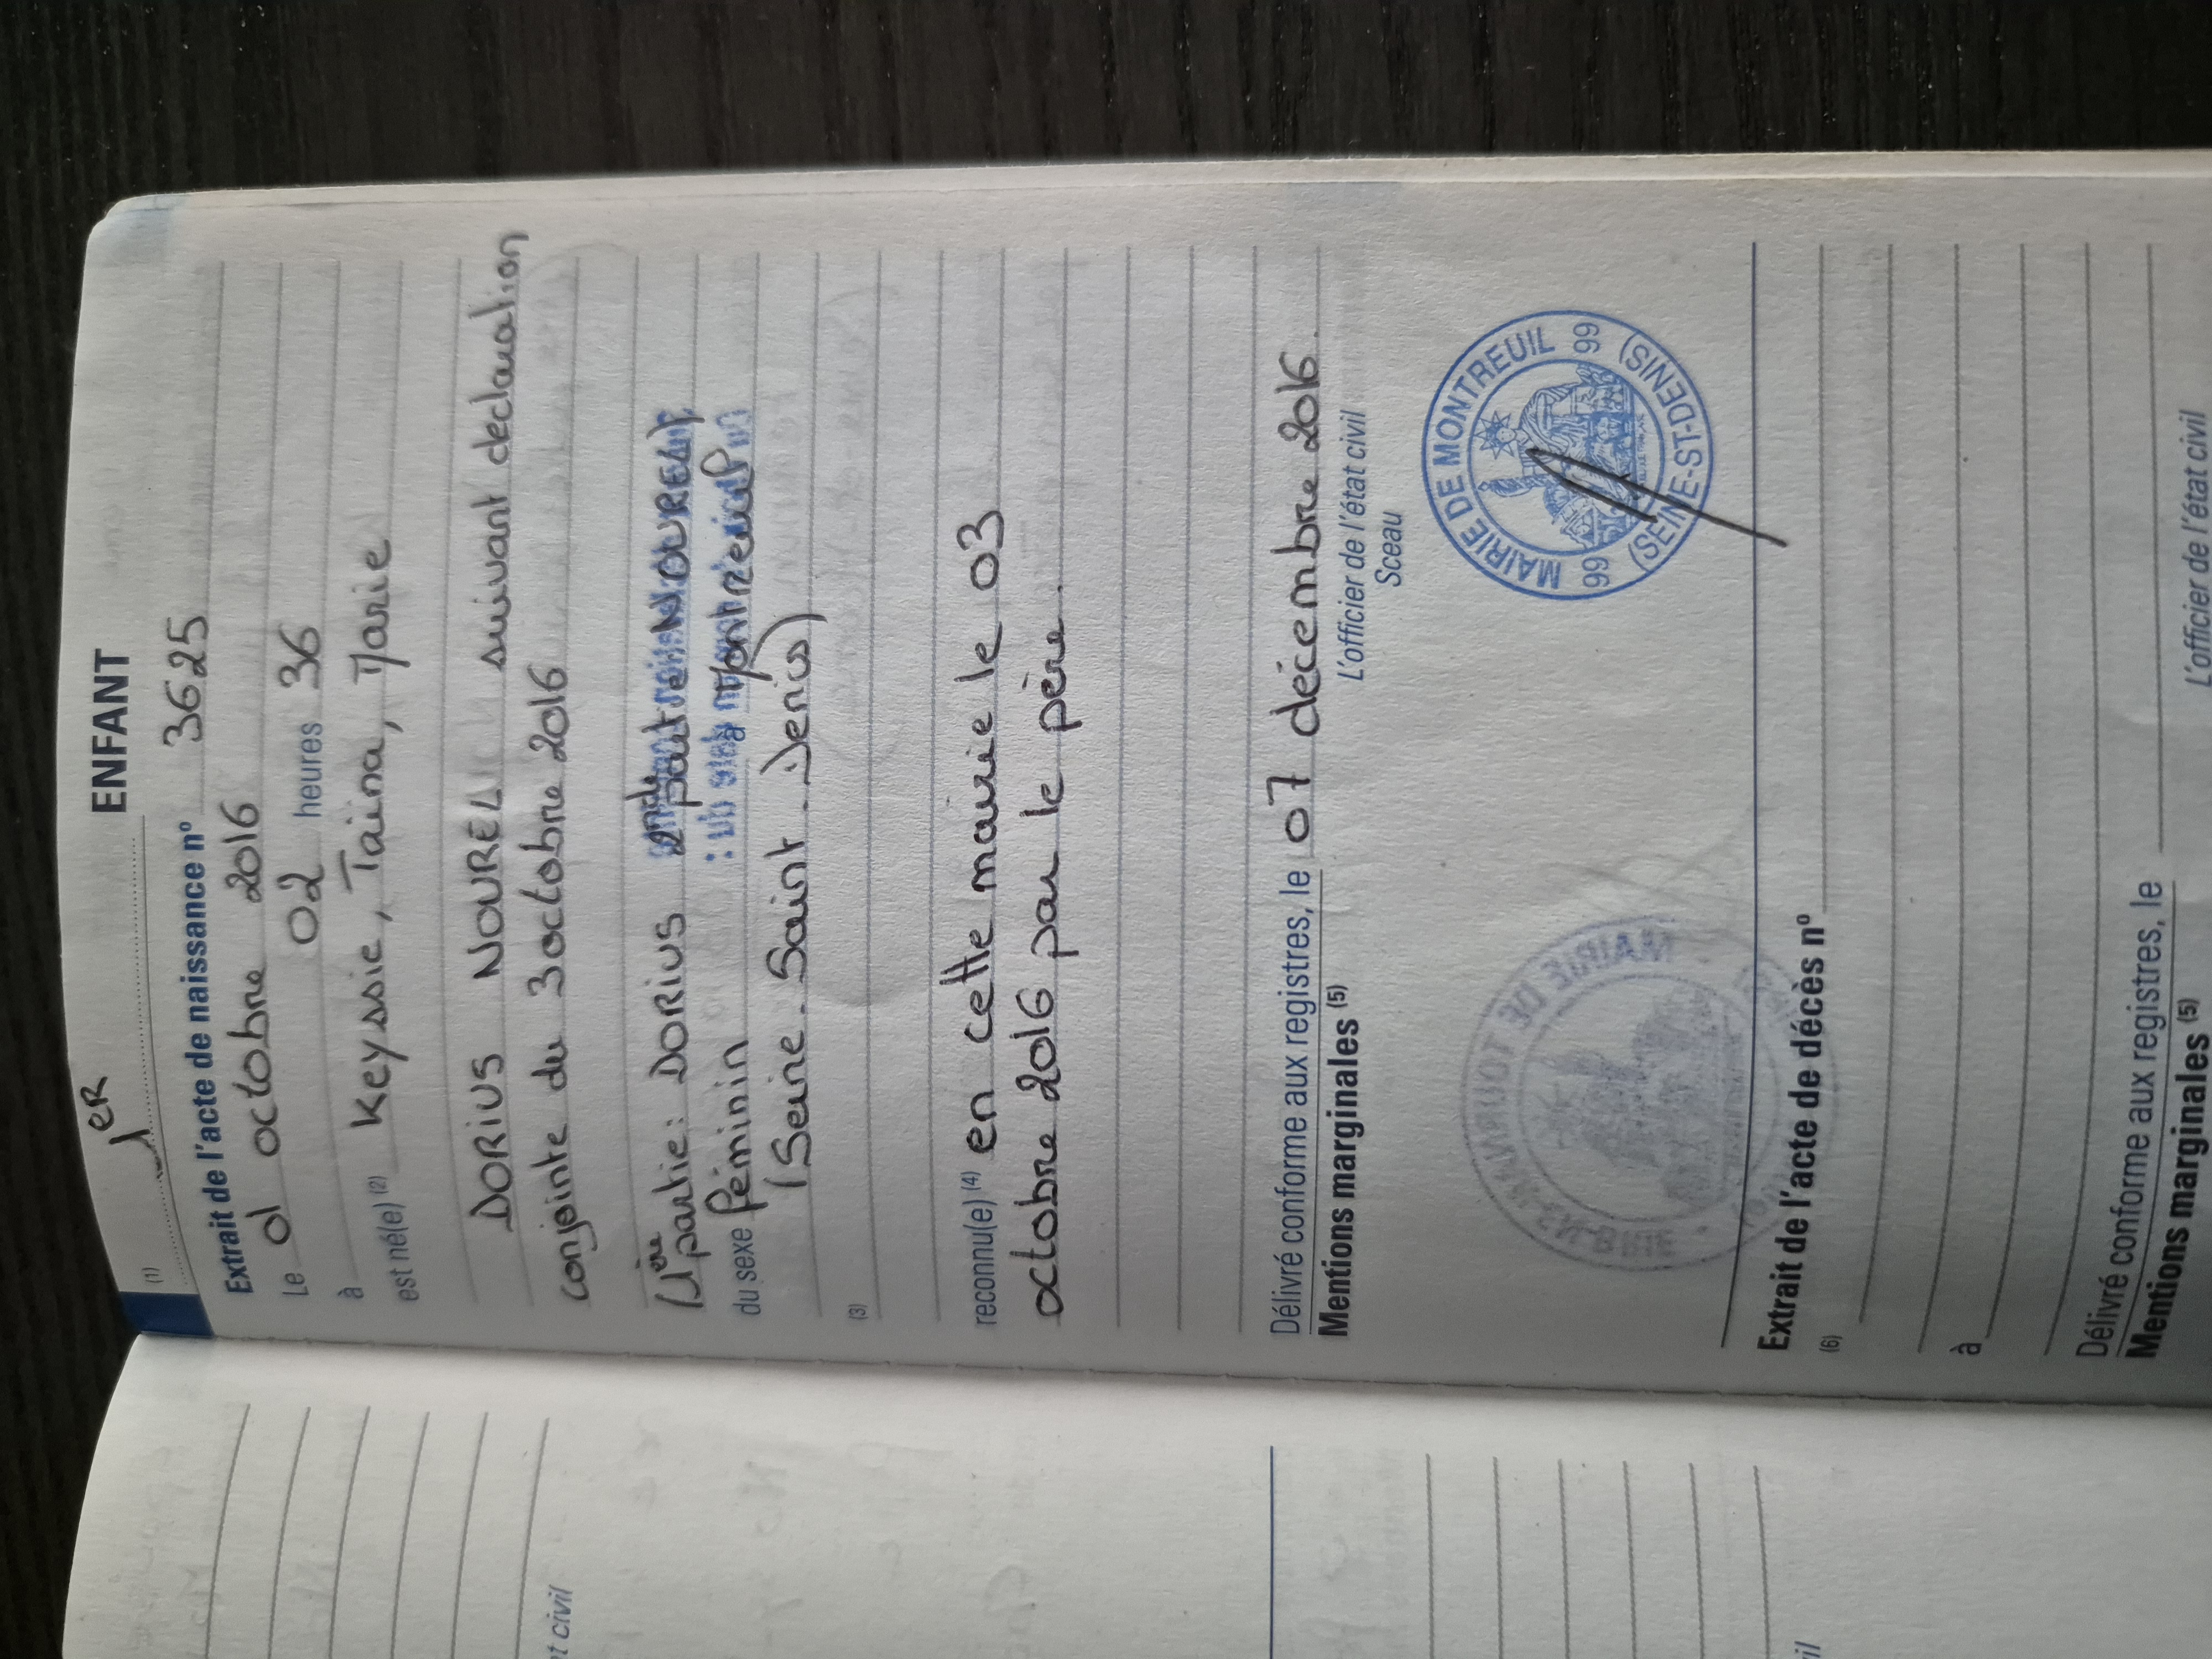 1ER ENFANT
(1)
Extrait de l'acte de naissance nº 3625
Le 01 octobre 2016
à 02 heures 36
est né(e) (2) Keyssie, Taïna, Marie
DORIUS NOUREL suivant declaration
conjointe du 3 octobre 2016
(1ère partie: DORIUS 2nde partie: NOUREL)
du sexe féminin Montreuil
(Seine-Saint-Denis)
(3)
reconnu(e) (4) en cette mairie le 03
octobre 2016 par le père.
Délivré conforme aux registres, le 07 décembre 2016.
Mentions marginales (5) L'officier de l'état civil
Sceau
MAIRIE DE MONTREUIL
99 99
(SEINE-ST-DENIS)
MAIRIE DE TOURNAN-EN-BRIE
Extrait de l'acte de décès nº
(6)
à
Délivré conforme aux registres, le
Mentions marginales (5) L'officier de l'état civil
t civil
vil